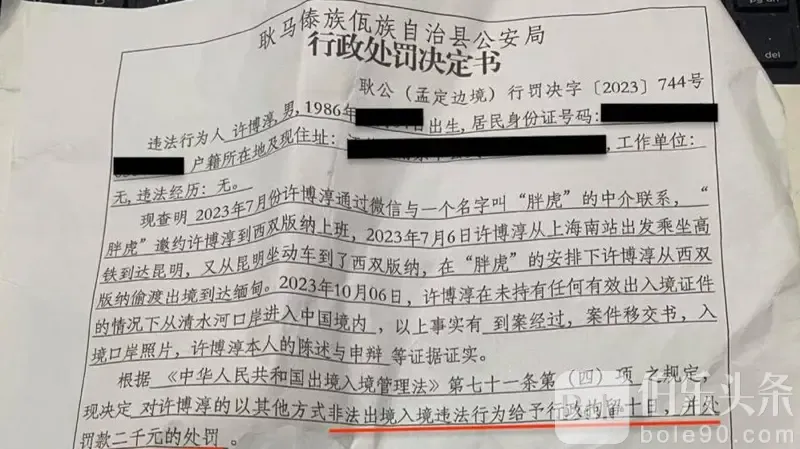 耿马傣族佤族自治县公安局
行政处罚决定书
耿公（孟定边境）行罚决字〔2023〕744号
违法行为人 许博淳，男，1986年 日出生，居民身份证号码：
户籍所在地及现住址： ，工作单位：
无，违法经历：无。
现查明 2023年7月份许博淳通过微信与一个名字叫“胖虎”的中介联系，“
胖虎”邀约许博淳到西双版纳上班，2023年7月6日许博淳从上海南站出发乘坐高
铁到达昆明，又从昆明坐动车到了西双版纳，在“胖虎”的安排下许博淳从西双
版纳偷渡出境到达缅甸。2023年10月06日，许博淳在未持有任何有效出入境证件
的情况下从清水河口岸进入中国境内，以上事实有 到案经过，案件移交书，入
境口岸照片，许博淳本人的陈述与申辩 等证据证实。
根据 《中华人民共和国出境入境管理法》第七十一条第（四）项 之规定，
现决定 对许博淳的以其他方式非法出境入境违法行为给予行政拘留十日，并处
罚款二千元的处罚 。
伯乐头条
bole90.com